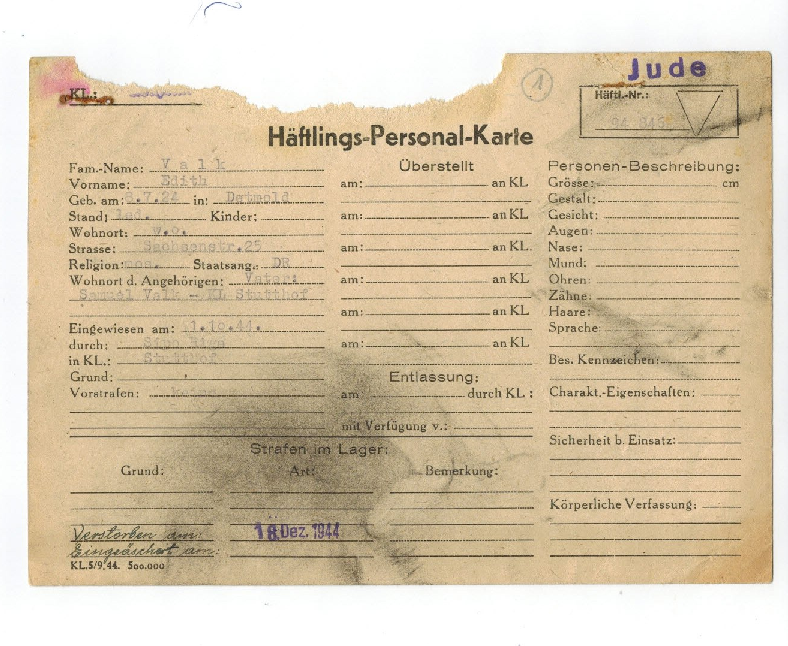 Jude
KL.:
1
Häftl.-Nr.:
Häftlings-Personal-Karte
Fam.-Name: Valk
Vorname: Edith
Geb. am: 8.7.22 in: Detmold
Stand: led. Kinder:
Wohnort: w.o.
Strasse: Sachsenstr.25
Religion: mos. Staatsang.: DR
Wohnort d. Angehörigen: Vater:
Samuel Valk - KL Stutthof
Eingewiesen am: 11.10.44.
durch: Sipo Riga
in KL.: Stutthof
Grund:
Vorstrafen:
Überstellt
am: an KL
am: an KL
am: an KL
am: an KL
am: an KL
am: an KL
Entlassung:
am durch KL :
mit Verfügung v.:
Personen-Beschreibung:
Grösse: cm
Gestalt:
Gesicht:
Augen:
Nase:
Mund:
Ohren:
Zähne:
Haare:
Sprache:
Bes. Kennzeichen:
Charakt.-Eigenschaften:
Sicherheit b. Einsatz:
Körperliche Verfassung:
Strafen im Lager:
Grund: Art: Bemerkung:
Verstorben am:
Dez. 1944
Eingeäschert am:
KL.5/9.44. 500.000